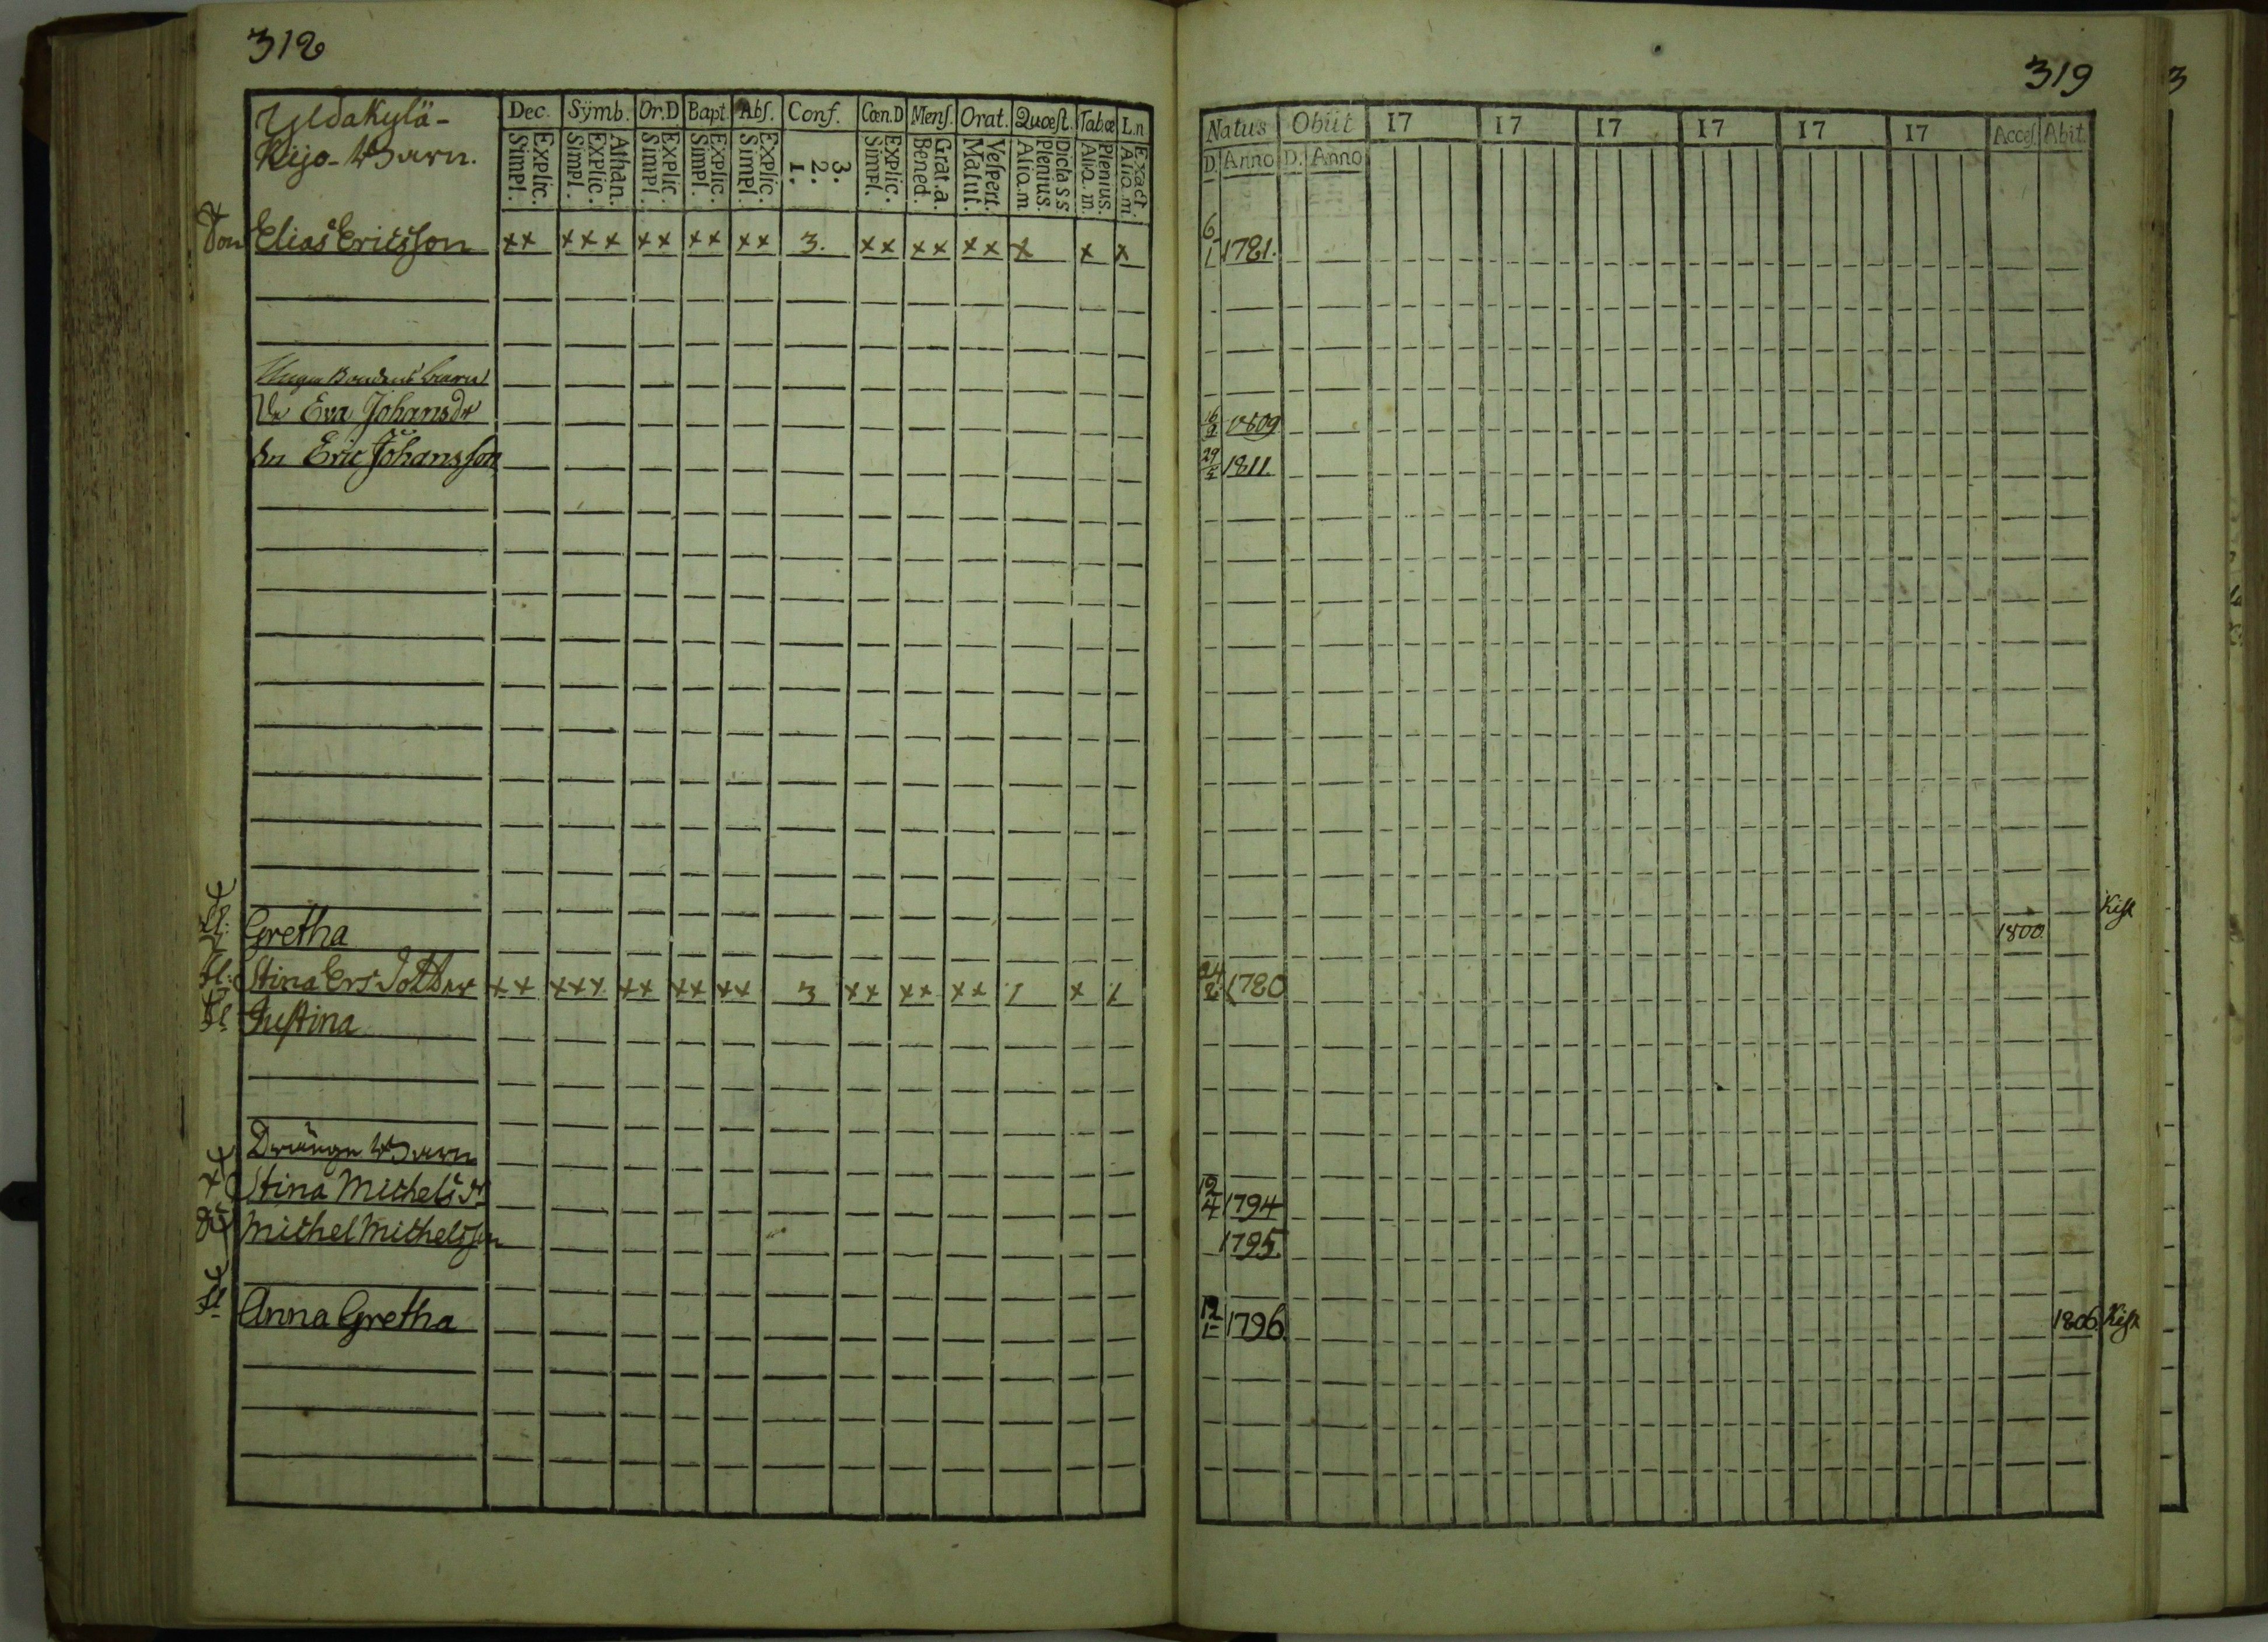 312
Yldakylä-
Kijo-Barn.
Dec. Symb. Or.D Bapt. Abſ. Conf. Cœn.D Menſ. Orat. Quœſt. Tab.œ L.n
Explic. Simpl. Athan. Explic. Simpl. Explic. Simpl. Explic. Simpl. Explic. Simpl. 3. 2. 1. Explic. Simpl. Grat.a. Bened. Veſpert. Matut. Dicta s.s. Plenius. Aliq.m Plenius. Aliq.m. Exact. Aliq.m.
Son Elias Ericsson xx xxx xx xx xx 3. xx xx xx x x x
Eva Johansdr
Eric Johansson
Gretha
Stina Ers Dotter xx xxx xx xx xx 3 xx xx xx / x /
Justina
Drängu Barn
Stina Michelsdr
Michel Michelsson
Anna Gretha
319
Natus Obiit 17 17 17 17 17 17 Acceſ. Abit.
D. Anno D. Anno
6/1 1781.
16/9 1809
29/5 1811.
1800. Kisk
24/8 1780
12/4 1794
1795
12/1 1796 1806 Kisk
3